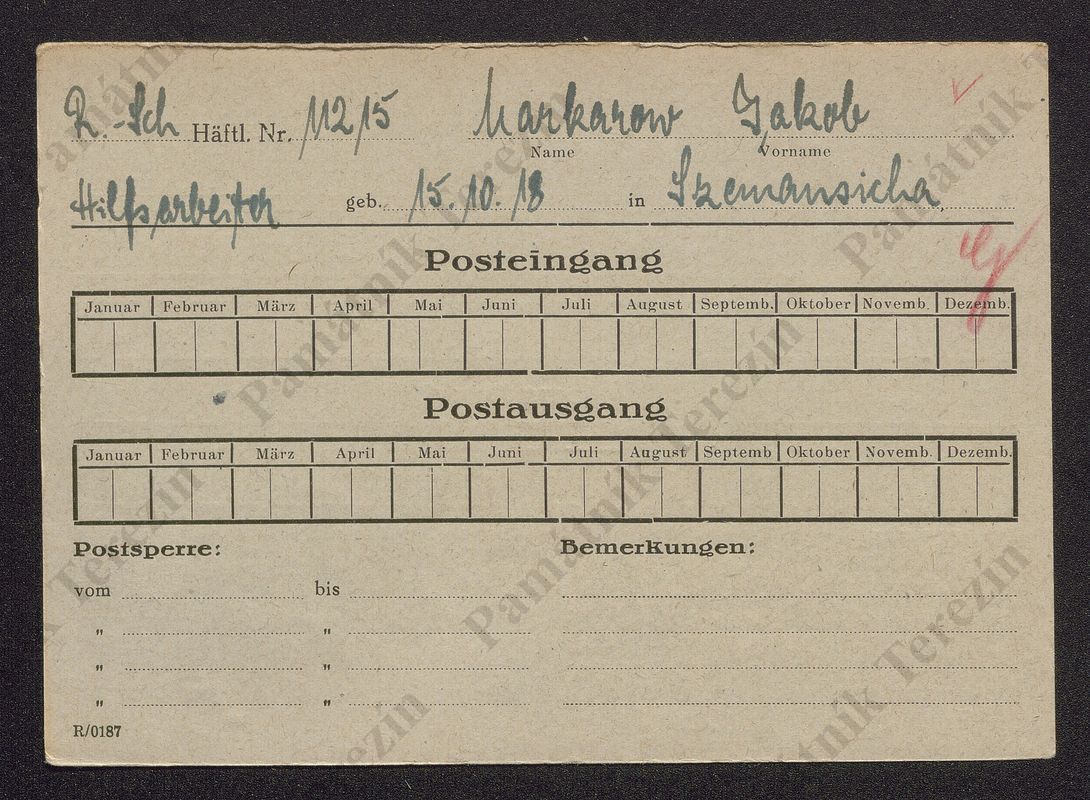 R.-Sch Häftl. Nr. 11215 Markarow Jakob
Name Vorname
Hilfsarbeiter geb. 15. 10. 18 in Szemansicha
Posteingang
Januar Februar März April Mai Juni Juli August Septemb. Oktober Novemb. Dezemb.
Postausgang
Januar Februar März April Mai Juni Juli August Septemb Oktober Novemb. Dezemb.
Postsperre: Bemerkungen:
vom bis
" "
" "
" "
R/0187
Památník Terezín